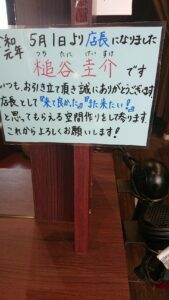 令和元年 5月1日より店長になりました
つちたに けいすけ
槌谷 圭介です
いつも、お引き立て頂き誠にありがとうございます
店長として『来て良かった』『また来たい!』
と思ってもらえる空間作りをして参ります。
これからよろしくお願いします!